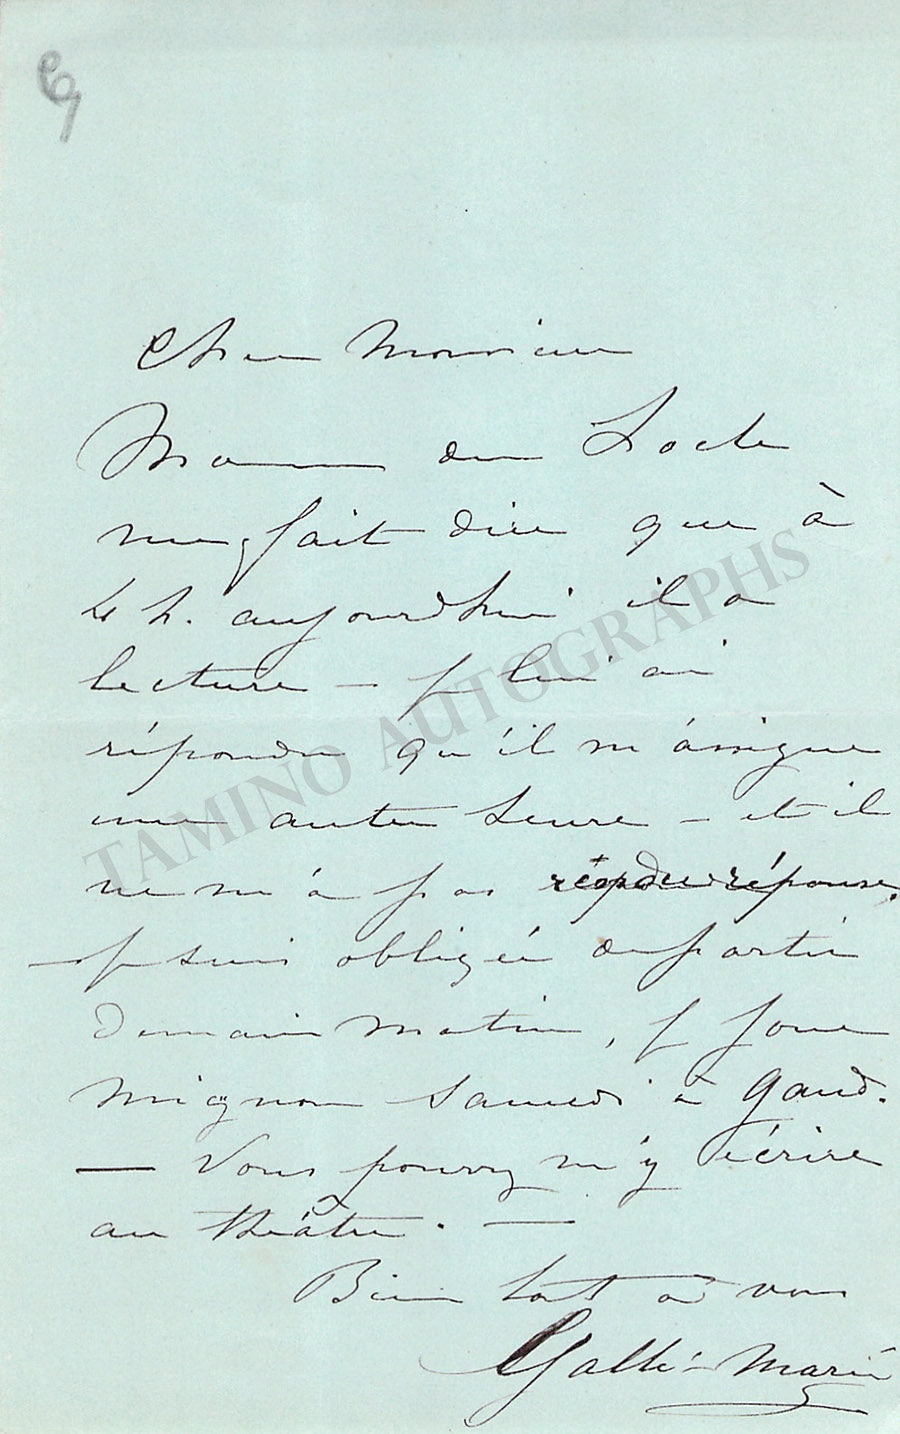 Cher Monsieur
Mr du Locle
me fait dire que à
4 h. aujourd'hui il a
lecture — je lui ai
répondu qu'il m'assigne
une autre heure — et il
ne m'a pas répondu réponse.
— je suis obligée de partir
demain matin, je joue
Mignon Samedi à Gand.
— Vous pouvez m'y écrire
au théâtre. —
Bien tout à vous
Galli-Marié
TAMINO AUTOGRAPHS